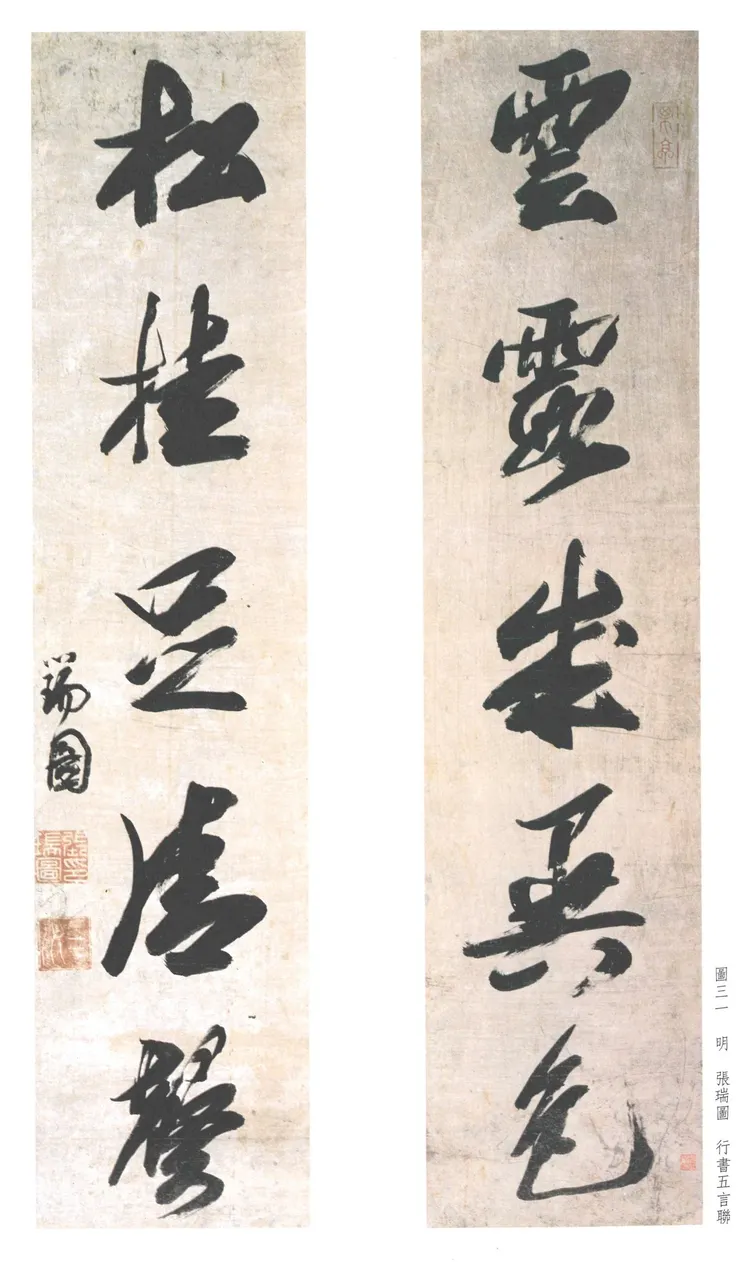 雲霞成異色
松桂足清聲
瑞圖
張印瑞圖
圖三一 明 張瑞圖 行書五言聯